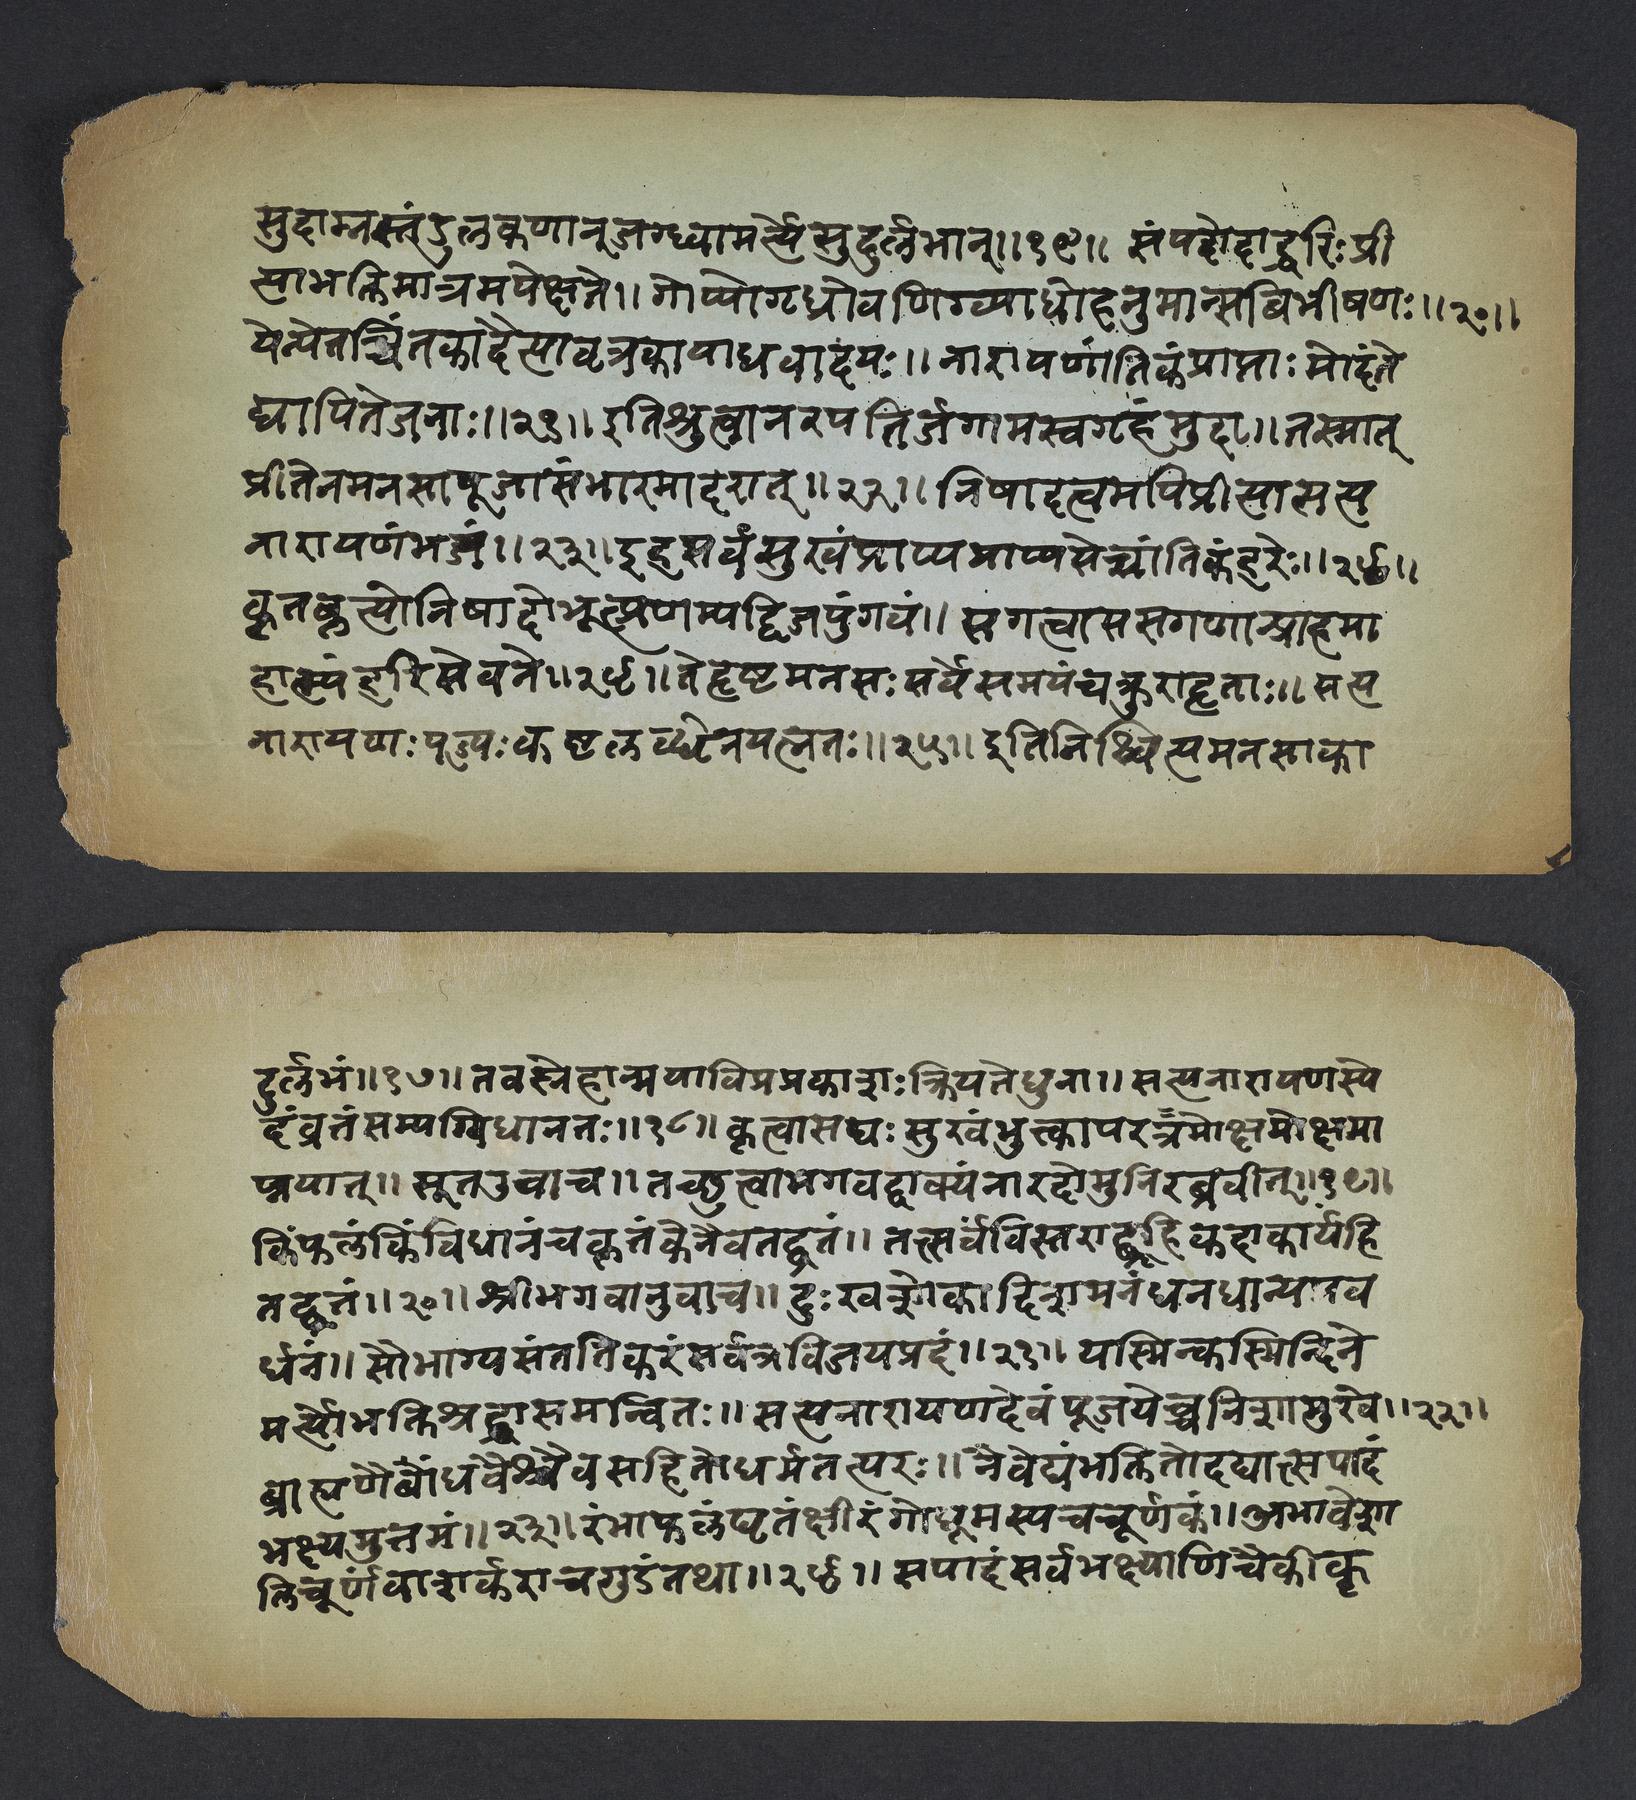 सुदाम्नस्तंडुलकणान्जग्ध्वामर्त्यैसुदुर्लभान्॥१९॥ संपदोदाद्धरिःप्री
त्याभक्तिमात्रमपेक्षते॥ गोप्योगृध्रोवणिग्व्याधोहनुमान्सविभीषणः॥२०॥
येन्येतच्चिंतकादैत्यावृत्रकायाधवादयः॥ नारायणांतिकंप्राप्ताःमोदंते
द्यापितेजनाः॥२१॥ इतिश्रुत्वानरपतिर्जगामस्वगृहंमुदा॥ तस्मात्
प्रीतेनमनसापूजासंभारमादरात्॥२२॥ निषादत्वमपिप्रीत्यासत्य
नारायणंभज॥२३॥ इहसर्वंसुखंप्राप्यप्राप्यसेच्चांतिकंहरेः॥२४॥
कृतकृत्योनिषादोभूत्प्रणम्यद्विजपुंगवं॥ सगत्वाससगणान्प्राहमा
हात्म्यंहरिसेवने॥२४॥ तेहृष्टमनसःसर्वेसमयंचक्रुरादृताः॥ सत्य
नारायणःपूज्यःकाष्टलब्धेनयत्नतः॥२५॥ इतिनिश्चित्यमनसाका
दुर्लभं॥१७॥ तवस्नेहान्मयाविप्रप्रकाशःक्रियतेधुना॥ सत्यनारायणस्ये
दंव्रतंसम्यग्विधानतः॥१८॥ कृत्वासद्यःसुखंभुक्त्वापरत्रमोक्षमोक्षमा
प्नुयात्॥ सूतउवाच॥ तच्छ्रुत्वाभगवद्वाक्यंनारदोमुनिरब्रवीत्॥१९॥
किंफलंकिंविधानंचकृतंकेनैवतद्व्रतं॥ तत्सर्वंविस्तराद्ब्रूहिकदाकार्यंहि
तद्व्रतं॥२०॥ श्रीभगवानुवाच॥ दुःखशोकादिशमनंधनधान्यप्रव
र्धनं॥ सौभाग्यसंततिकरंसर्वत्रविजयप्रदं॥२१॥ यस्मिन्कस्मिन्दिने
मर्त्योभक्तिश्रद्धासमन्वितः॥ सत्यनारायणदेवंपूजयेच्चनिशामुखे॥२२॥
ब्राह्मणैर्बांधवैश्चैवसहितोधर्मतत्परः॥ नैवेद्यंभक्तितोदद्यात्सपादं
भक्ष्यमुत्तमं॥२३॥ रंभाफलंघृतंक्षीरंगोधूमस्यचचूर्णकं॥ अभावेशा
लिचूर्णंवाशर्कराचगुडंतथा॥२४॥ सपादंसर्वभक्ष्याणिचैकीकृ